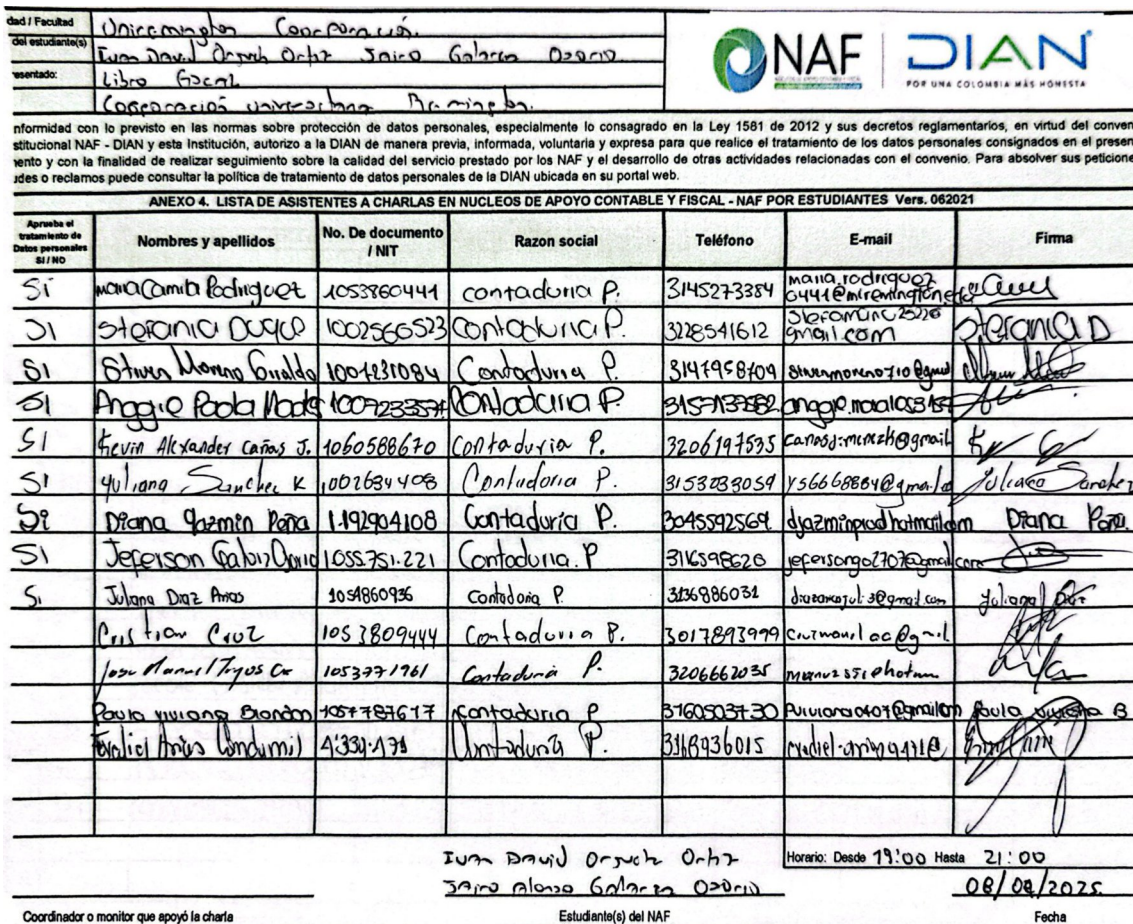 dad / Facultad Uniremington Corporación.
del estudiante(s) Ivan David Ortiz Jairo Galarza Osorio
esentado: Libro Fiscal
Corporación universitaria Remington.
NAF DIAN
POR UNA COLOMBIA MÁS HONESTA
nformidad con lo previsto en las normas sobre protección de datos personales, especialmente lo consagrado en la Ley 1581 de 2012 y sus decretos reglamentarios, en virtud del conven
stitucional NAF - DIAN y esta Institución, autorizo a la DIAN de manera previa, informada, voluntaria y expresa para que realice el tratamiento de los datos personales consignados en el presen
ento y con la finalidad de realizar seguimiento sobre la calidad del servicio prestado por los NAF y el desarrollo de otras actividades relacionadas con el convenio. Para absolver sus peticione
udes o reclamos puede consultar la política de tratamiento de datos personales de la DIAN ubicada en su portal web.
ANEXO 4. LISTA DE ASISTENTES A CHARLAS EN NUCLEOS DE APOYO CONTABLE Y FISCAL - NAF POR ESTUDIANTES Vers. 062021
Aprueba el tratamiento de Datos personales SI / NO Nombres y apellidos No. De documento / NIT Razon social Teléfono E-mail Firma
Si Maria Camila Rodriguez 1053860441 contaduria P. 3145273354 maria.rodriguez
SI Stefania Duque 1002560523 Contaduria P. 3228541612 gmail.com Stefania D
SI Stiven Moreno Giraldo Contaduria P. 3147958709 stivenmoreno710@gmail
SI Anggie Paola Contaduria P.
SI Kevin Alexander Cañas J. 1060588670 Contaduria P. 3206197535
SI Yuliana Sanchez K 1002634408 Contaduria P. 3153233059 Yuliana Sanchez
Si Diana Yazmin Peña 1.192904108 Contaduría P. 3045592569 Diana Peña
SI Jeferson 1055751.221 Contaduria. P 316598620 jefersongo2707@gmail.com
Si Juliana Diaz Arias 1054860936 Contaduria P. 3136886031 Juliana Diaz
Cristian Cruz 1053809444 Contaduria P. 3017893999
Jose Manuel 1053771961 Contaduria P. 3206662035
Paula viviana Brandon 1057787617 Contaduria P 3160503730 Paula viviana B
Arias Contaduría P. 3168936015
Ivan David Ortiz Horario: Desde 19:00 Hasta 21:00
Jairo Alonso Galarza Osorio 08/09/2025
Coordinador o monitor que apoyó la charla Estudiante(s) del NAF Fecha